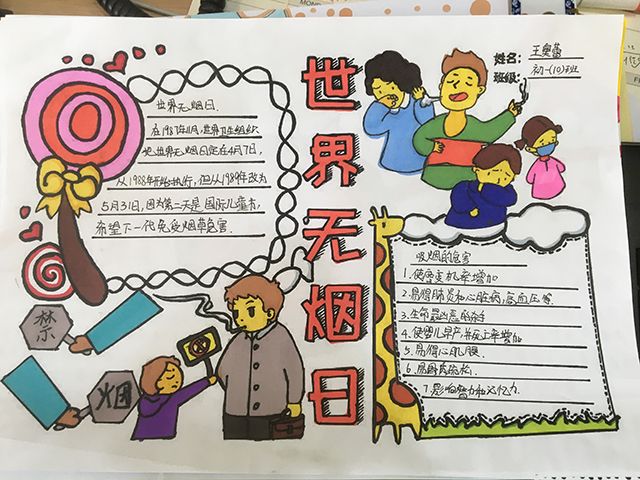 世界无烟日
姓名：王奥蕾
班级：初一(10)班
世界无烟日.
在1987年11月,世界卫生组织
把世界无烟日定在4月7日,
从1988年开始执行,但从1989年改为
5月31日,因为第二天是国际儿童节,
希望下一代免受烟草危害.
禁
烟
吸烟的危害
1.使患癌机率增加
2.易得肺炎和心脏病,高血压等
3.生命
4.使婴儿早产并死亡率增加
5.易得心肌梗
6.易骨质疏松
7.影响智力和记忆力.